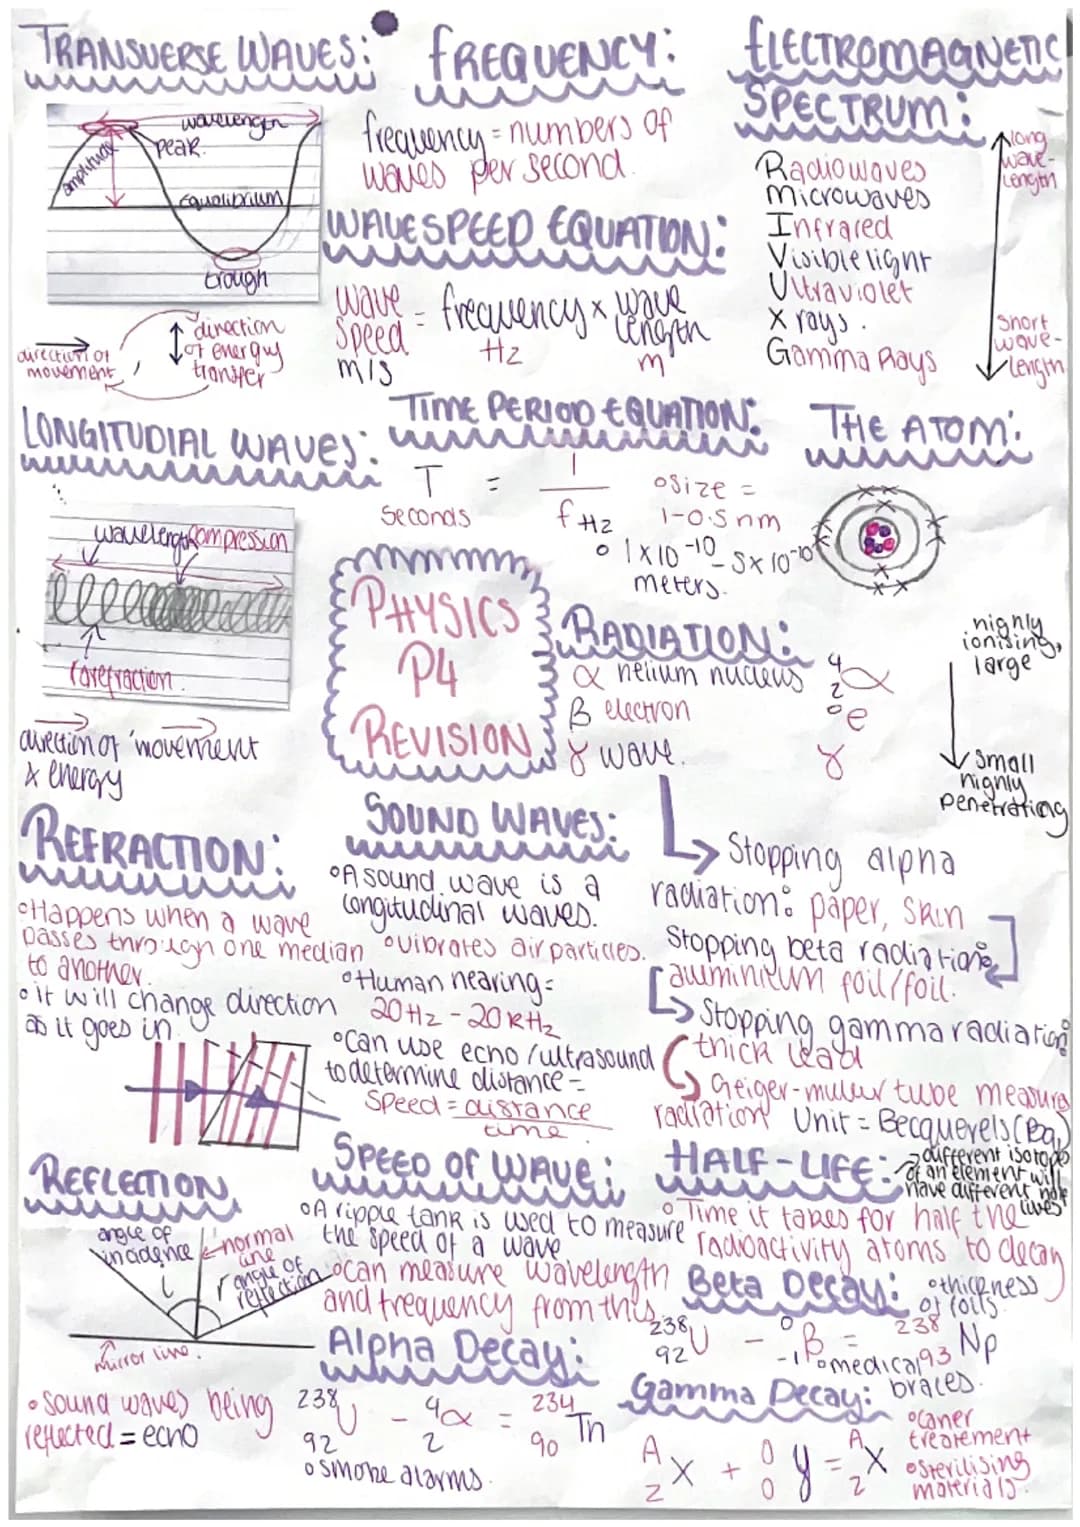 TRANSVERSE WAVES:
wavelength
peak.
amplitude
equilibrium
trough
direction of movement
direction
of energy
transfer
FREQUENCY:
frequency = numbers of
waves per second.
WAVESPEED EQUATION:
wave speed = frequency x wave length
m/s Hz m
ELECTROMAGNETIC
SPECTRUM:
Radiowaves
Microwaves
Infrared
Visible light
Ultraviolet
X rays.
Gamma Rays
long
wave-
length
short
wave-
length
LONGITUDIAL WAVES:
wavelength compression
rarefraction.
direction of movement
& energy
TIME PERIOD EQUATION:
T = 1
f Hz
seconds
THE ATOM:
size =
1-0.5 nm
1x10⁻¹⁰ - 5x10⁻¹⁰
meters.
PHYSICS
P4
REVISION
RADIATION:
α helium nucleus ⁴₂α
β electron ⁰e
γ wave. γ
highly
ionising,
large
small
highly
penetrating
Stopping alpha
radiation: paper, skin
Stopping beta radiation:
aluminium foil/foil.
Stopping gamma radiation:
thick lead
Geiger-muller tube measures
radiation Unit = Becquerels (Bq)
REFRACTION:
Happens when a wave
passes through one median
to another.
it will change direction
as it goes in.
SOUND WAVES:
A sound wave is a
longitudinal waves.
vibrates air particles.
Human hearing =
20Hz - 20kHz
Can use echo/ultrasound
to determine distance =
Speed = distance
time.
REFLECTION
angle of
incidence
i
normal
line
r
angle of
reflection
mirror line.
sound waves being
reflected = echo
SPEED OF WAVE:
A ripple tank is used to measure
the speed of a wave
can measure wavelength
and frequency from this.
HALF-LIFE:
different isotopes
of an element will
have different half
lives
Time it takes for half the
radioactivity atoms to decay
Alpha Decay:
²³⁸₉₂U - ⁴₂α = ²³⁴₉₀Th
smoke alarms.
Beta Decay:
thickness
of foils.
²³⁸₉₂U - ⁰₋₁β = ²³⁸₉₃Np
medical
braces.
Gamma Decay:
ᴬzX + ⁰₀γ = ᴬzX
caner
treatement
sterilising
materials.